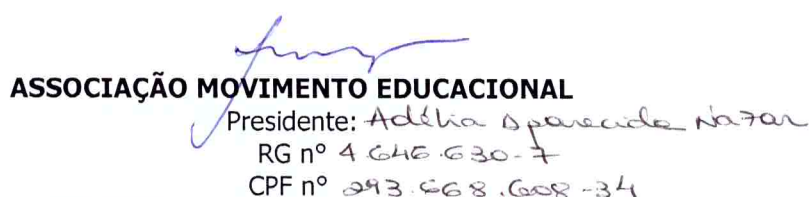 ASSOCIAÇÃO MOVIMENTO EDUCACIONAL
Presidente: Adélia Aparecida Nazar
RG nº 4.646.630-7
CPF nº 293.668.608-34